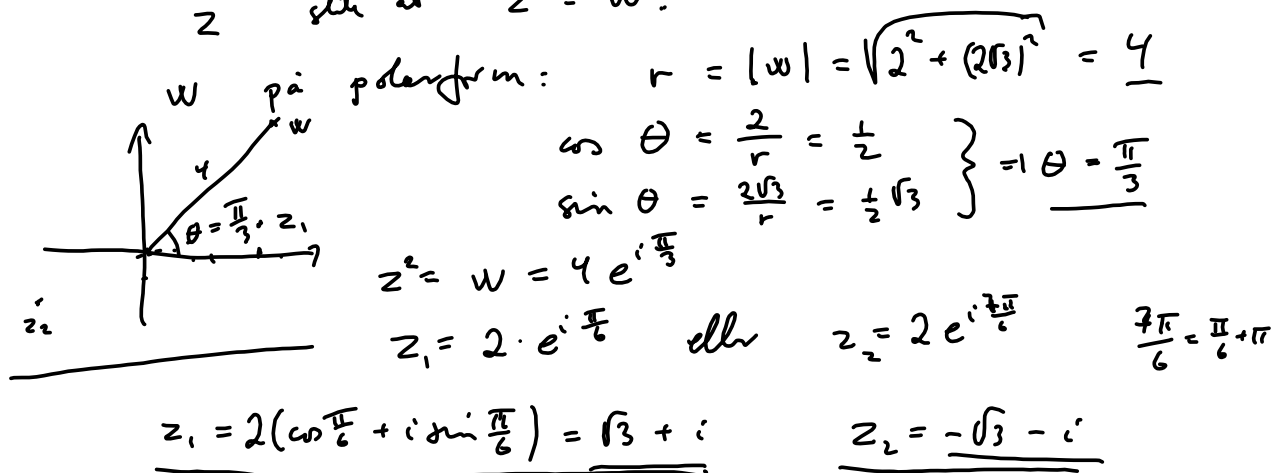 z slik at z² = w.
w på polarform: r = |w| = √(2² + (2√3)²) = 4
w
4
cos θ = 2/r = 1/2
sin θ = 2√3/r = 1/2 √3 } ⇒ θ = π/3
θ = π/3 · z₁
z² = w = 4 e^{i π/3}
z₂
z₁ = 2 · e^{i π/6} eller z₂ = 2 e^{i 7π/6} 7π/6 = π/6 + π
z₁ = 2(cos π/6 + i sin π/6) = √3 + i z₂ = -√3 - i